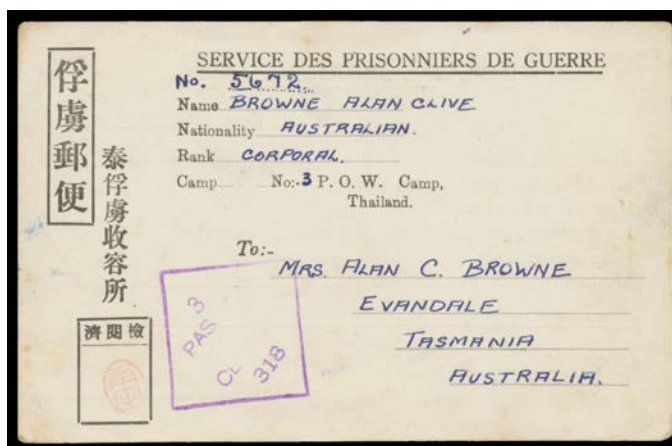 俘虜郵便
泰俘虜收容所
濟閱檢
SERVICE DES PRISONNIERS DE GUERRE
No. 5672.
Name BROWNE ALAN CLIVE
Nationality AUSTRALIAN.
Rank CORPORAL.
Camp No:-3 P. O. W. Camp,
Thailand.
To:-
MRS. ALAN C. BROWNE
EVANDALE
TASMANIA
AUSTRALIA.
3
PAS
318